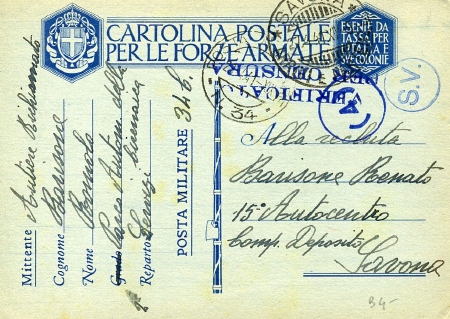 CARTOLINA POSTALE
PER LE FORZE ARMATE
ESENTE DA
TASSA PER
L'ITALIA E
SUE COLONIE
SAVONA
VERIFICATO
PER CENSURA
S.V.
34
Mittente
Cognome Barisone
Nome
Grado
Reparto Servizi
POSTA MILITARE 34 b.
Alla recluta
Barisone Renato
15° Autocentro
Comp. Deposito
Savona
34-